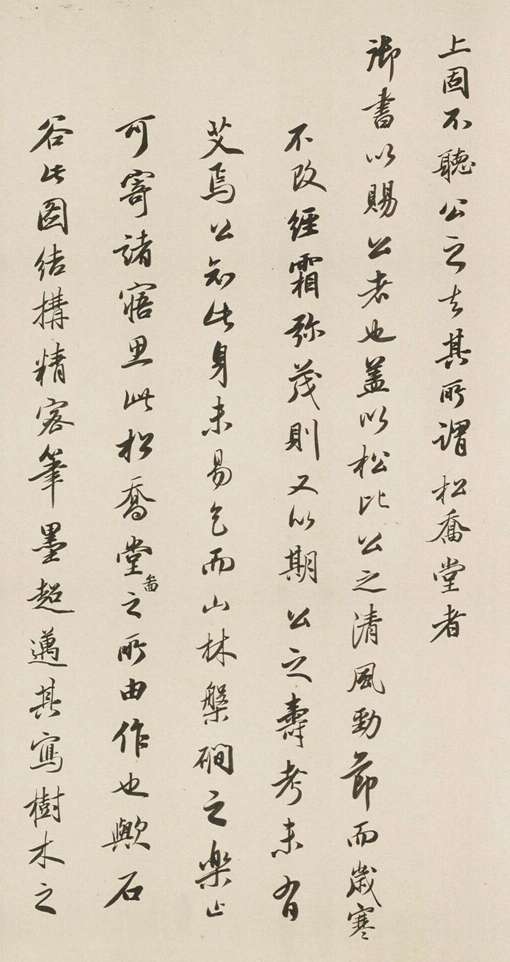 上固不聽公之去其所謂松喬堂者
御書以賜公者也蓋以松比公之清風勁節而歲寒
不改經霜弥茂則又以期公之壽考未有
艾焉公知此身未易乞而山林槃磵之樂止
可寄諸寤思此松喬堂圖之所由作也歟石
谷此図結搆精密筆墨超邁其寫樹木之